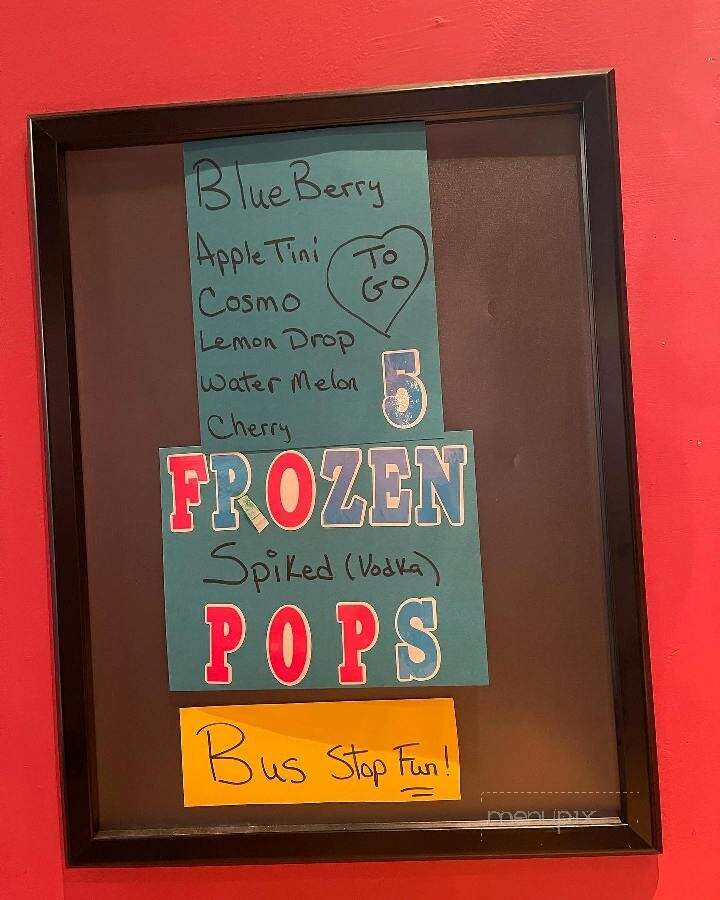 BlueBerry
Apple Tini
TO
GO
Cosmo
Lemon Drop
Water Melon
5
Cherry
FROZEN
Spiked (Vodka)
POPS
Bus Stop Fun!
menupix